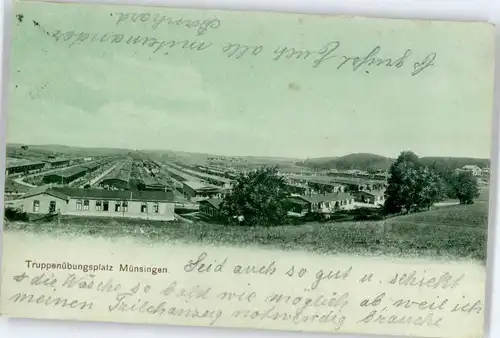 Es grüßt Euch alle miteinander
Bernhard
Truppenübungsplatz Münsingen. Seid auch so gut u. schickt
die Wäsche so bald wie möglich ab, weil ich
meinen Trilchanzug notwendig brauche